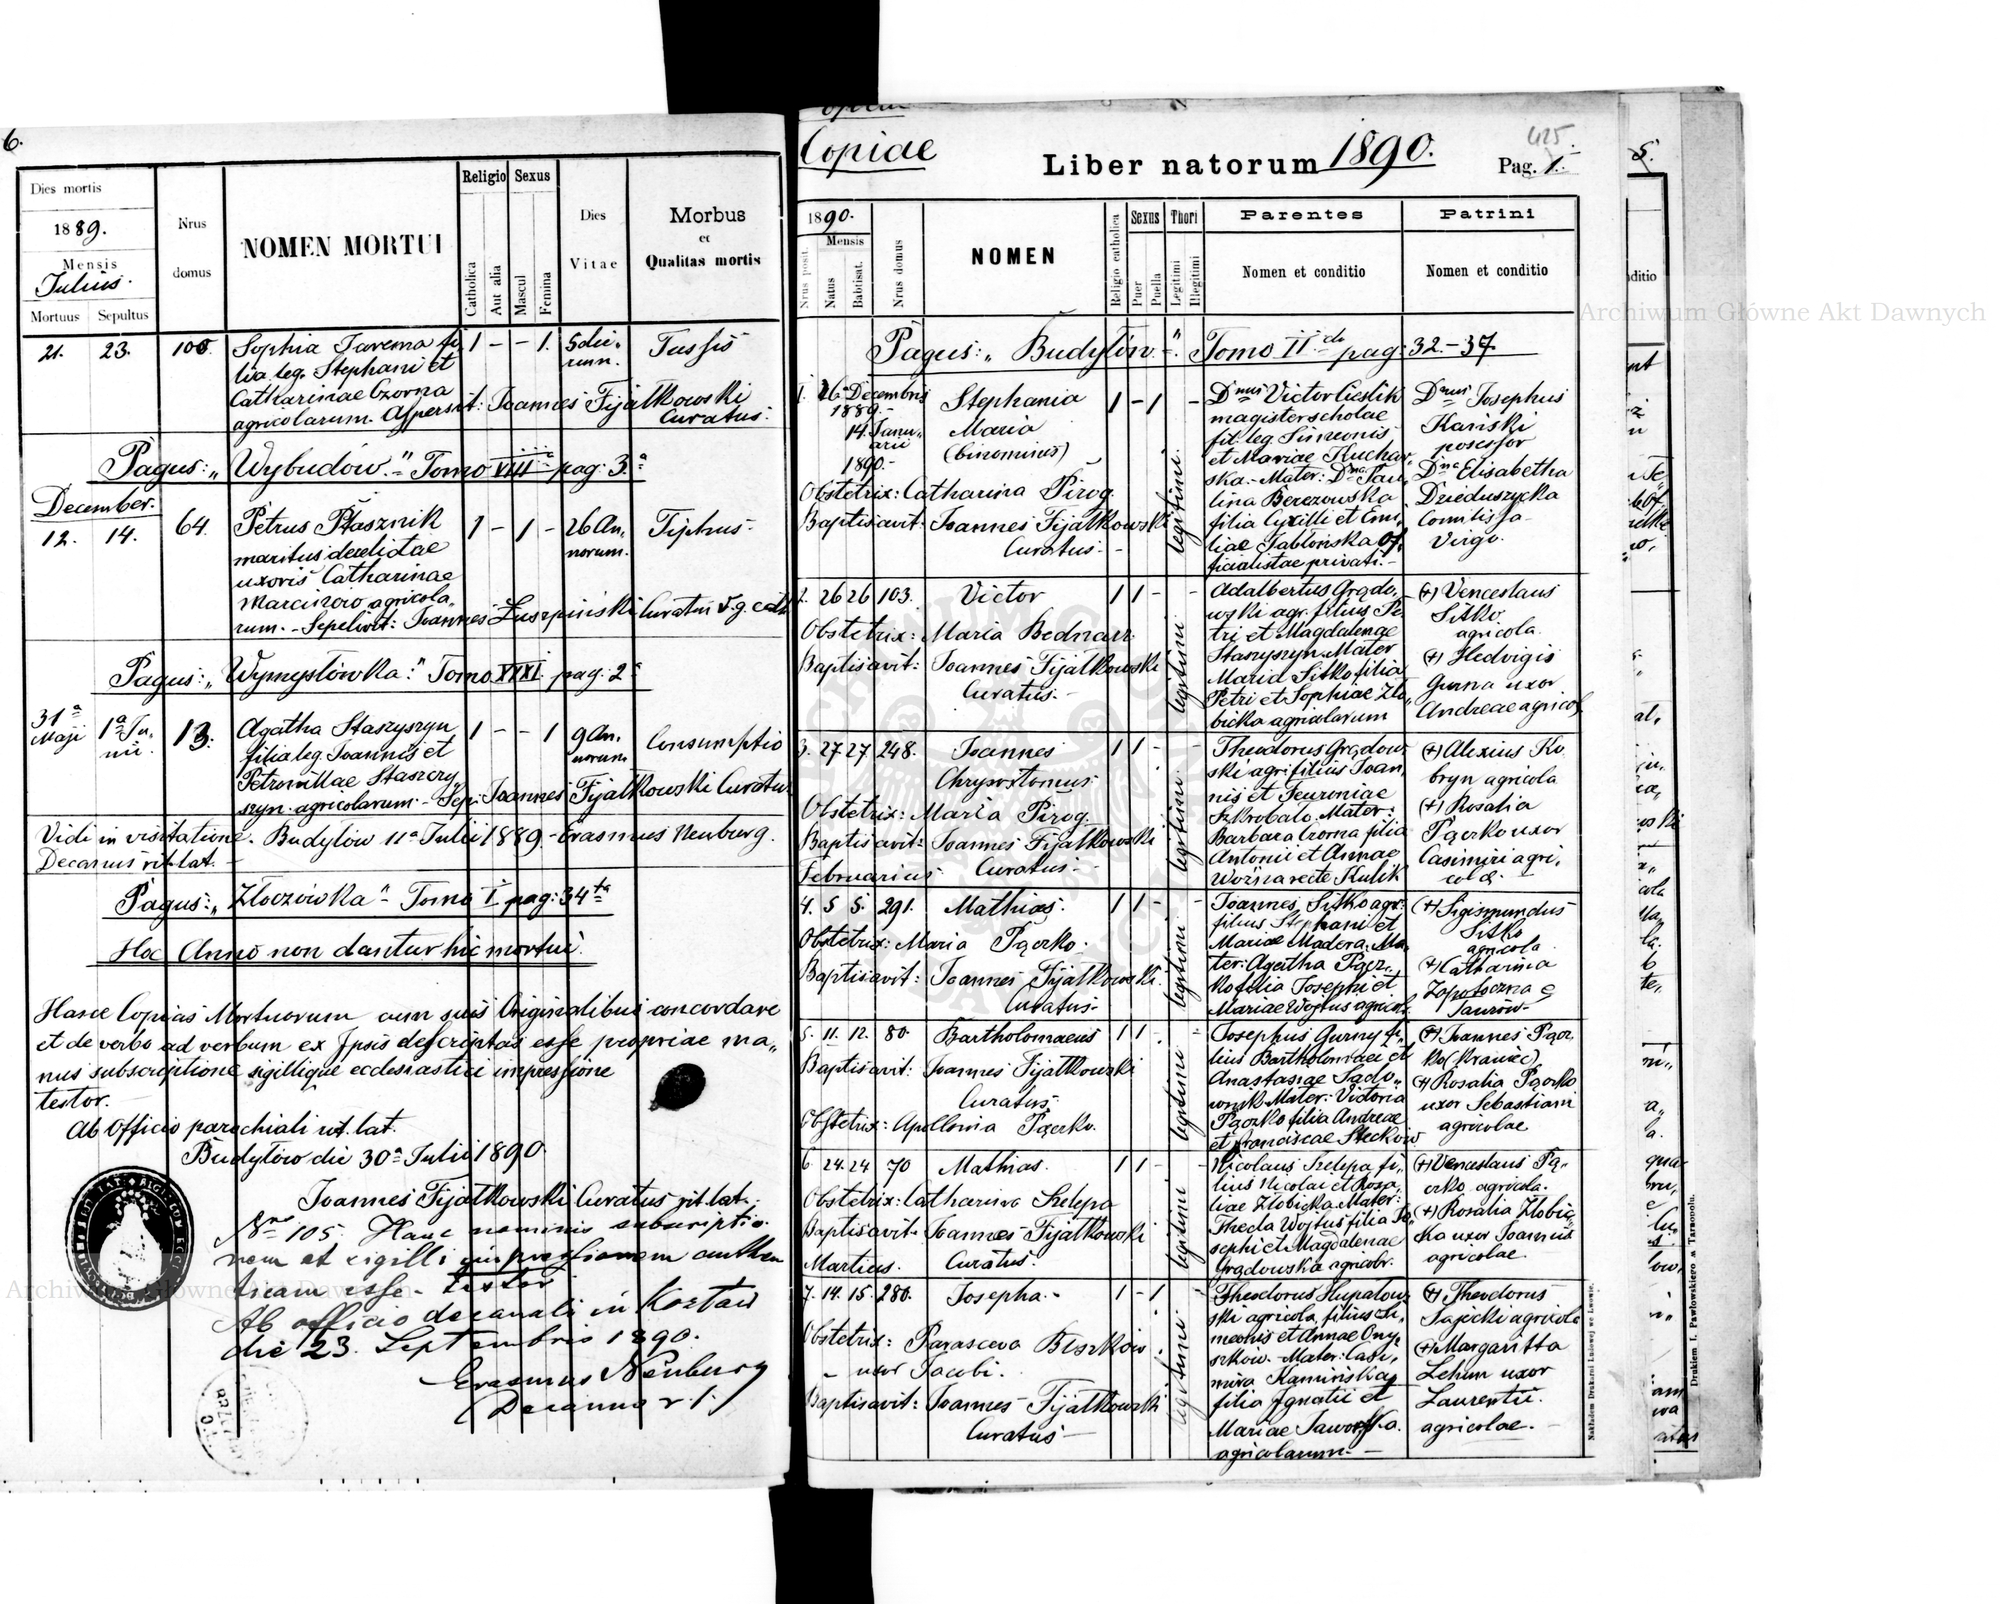 6.
Dies mortis
1889.
Mensis
Julius.
Mortuus Sepultus
Nrus domus
NOMEN MORTUI
Religio
Catholica
Aut alia
Sexus
Mascul
Femina
Dies Vitae
Morbus
et
Qualitas mortis
21. 23. 106. Sophia Tarema fi 1 - - 1. 5 die, Tussis
lia leg. Stephani et rum.
Catharinae Czorna
agricolarum. Aspersit: Joannes Fijałkowski
Curatus.
Pagus: „Wybudów." Tomo VIII pag: 3.a
December.
12. 14. 64. Petrus Ptasznik 1 - 1 - 26 An, Tiphus.
maritus derelictae norum.
uxoris Catharinae
Marciniow agricola,
rum. - Sepelivit: Joannes Łuszpiński Curatus r. g. cath
Pagus: „Wymysłówka:" Tomo XXXI. pag: 2a
31a Maji 1a Ju, nii. 13. Agatha Staszyszyn 1 - - 1 9 An, Consumptio
filia leg. Joannis et norum
Petronillae Staszczy,
szyn. agricolarum. - Sep: Joannes Fijałkowski Curatus
Vidi in visitatione. Budyłów 11a Julii 1889 - Erasmus Neuburg.
Decanus rit. lat.
Pagus: „Złoczówka" Tomo I. pag: 34ta
Hoc Anno non dantur hic mortui.
Hasce Copias Mortuorum cum suis Originalibus concordare
et de verbo ad verbum ex Ipsis descriptas esse propriae ma„
nus subscriptione sigillique ecclesiastici impressione
testor.
Ab Officio parochiali rit. lat.
Budyłów die 30a Julii 1890.
Joannes Fijałkowski Curatus rit. lat.
Nro 105. Hanc nominis subscriptio
nem et sigilli impressionem authen
ticam esse testor
Ab officio decanali in Kozłów
die 23. Septembris 1890.
Erasmus Neuburg
Decanus r. l.
Copiae
Liber natorum 1890.
425
Pag. 1.
1890.
Mensis
Nrus posit.
Natus
Babtisat.
Nrus domus
NOMEN
Religio catholica
Sexus
Puer
Puella
Thori
Legitimi
Illegitimi
Parentes
Nomen et conditio
Patrini
Nomen et conditio
Pagus: „Budyłów." Tomo II do pag: 32.-37.
1. 26 Decembris 1889.- 14. Janu„ arii 1890.- Stephania Maria (binominis) 1 - 1 -
Obstetrix: Catharina Pirog.
Baptisavit: Joannes Fijałkowski
Curatus. -
legitimi
Dnus Victor Cieslik
magister scholae
fil. leg. Simeonis
et Mariae Kuchar,
ska. - Mater: Dna Pau,
lina Berezowska
filia Cyrilli et Emi,
liae Jabłońska Of,
ficialistae privati. -
Dnus Josephus
Kański
posessor
Dna Elisabetha
Dzieduszycka
Comitissa
Virgo.
2. 26 26 103. Victor 1 1 - -
Obstetrix: Maria Bednarz
Baptisavit: Joannes Fijałkowski
Curatus. -
legitimi
Adalbertus Grądo,
wski agr. filius Pe,
tri et Magdalenae
Staszyszyn. Mater
Maria Sitko filia
Petri et Sophiae Zło,
bicka agricolarum
(+) Venceslaus
Sitko
agricola.
(+) Hedvigis
Gurna uxor
Andreae agricol.
3. 27 27 248. Joannes 1 1 - -
Chrysostomus
Obstetrix: Maria Pirog.
Baptisavit: Joannes Fijałkowski
Februarius Curatus. -
legitimi
Theodorus Grądow
ski agr. filius Joan,
nis et Feuroniae
Szkrobala. Mater:
Barbara Czorna filia
Antonii et Annae
Woźna recte Kulik
(+) Alexius Ko,
bryn agricola
(+) Rosalia
Pączko uxor
Casimiri agri,
colae.
4. 5 5. 291. Mathias. 1 1 - -
Obstetrix: Maria Pączko.
Baptisavit: Joannes Fijałkowski.
Curatus.
legitimi
Joannes Sitko agr.
filius Stephani et
Mariae Madera. Ma,
ter: Agatha Pącz,
ko filia Josephi et
Mariae Wojtus agricol.
(+) Sigismundus
Sitko
agricola
(+) Catharina
Zapotoczna e
Taurów.
5. 11. 12. 80. Bartholomaeus 1 1 - -
Baptisavit: Joannes Fijałkowski
Curatus.
Obstetrix: Apollonia Pączko.
legitimi
Josephus Gurny fi,
lius Bartholomaei et
Anastasiae Sado,
wnik. Mater: Victoria
Pączko filia Andreae
et Franciscae Steckow
(+) Joannes Pącz,
ko (Krawiec)
(+) Rosalia Pączko
uxor Sebastiani
agricolae
6. 24. 24 70 Mathias. 1 1 - -
Obstetrix: Catharina Szelepa
Baptisavit: Joannes Fijałkowski
Martius. Curatus.
legitimi
Nicolaus Szelepa fi,
lius Nicolai et Rosa,
liae Złobicka. Mater:
Thecla Wojtuś filia Jo,
sephi et Magdalenae
Grądowska agricolr.
(+) Venceslaus Pą„
czko, agricola.
(+) Rosalia Złobic,
ka uxor Joannis
agricolae.
7. 14. 15. 280. Josepha. - 1 - 1
Obstetrix: Parasceva Błszków
uxor Jacobi.
Baptisavit: Joannes Fijałkowski
Curatus -
legitimi
Theodorus Hupałow,
ski agricola, filius Si,
meonis et Annae Ony,
szków. - Mater: Casi,
mira Kamińska
filia Ignatii et
Mariae Jaworska.
agricolarum. -
(+) Theodorus
Sajecki agricola
(+) Margaritta
Lehun uxor
Laurentii.
agricolae. -
Nakładem Drukarni Ludowej we Lwowie.
Drukiem I. Pawłowskiego w Tarnopolu.
5.
ditio
Archiwum Główne Akt Dawnych
Archiwum Główne Akt Dawnych